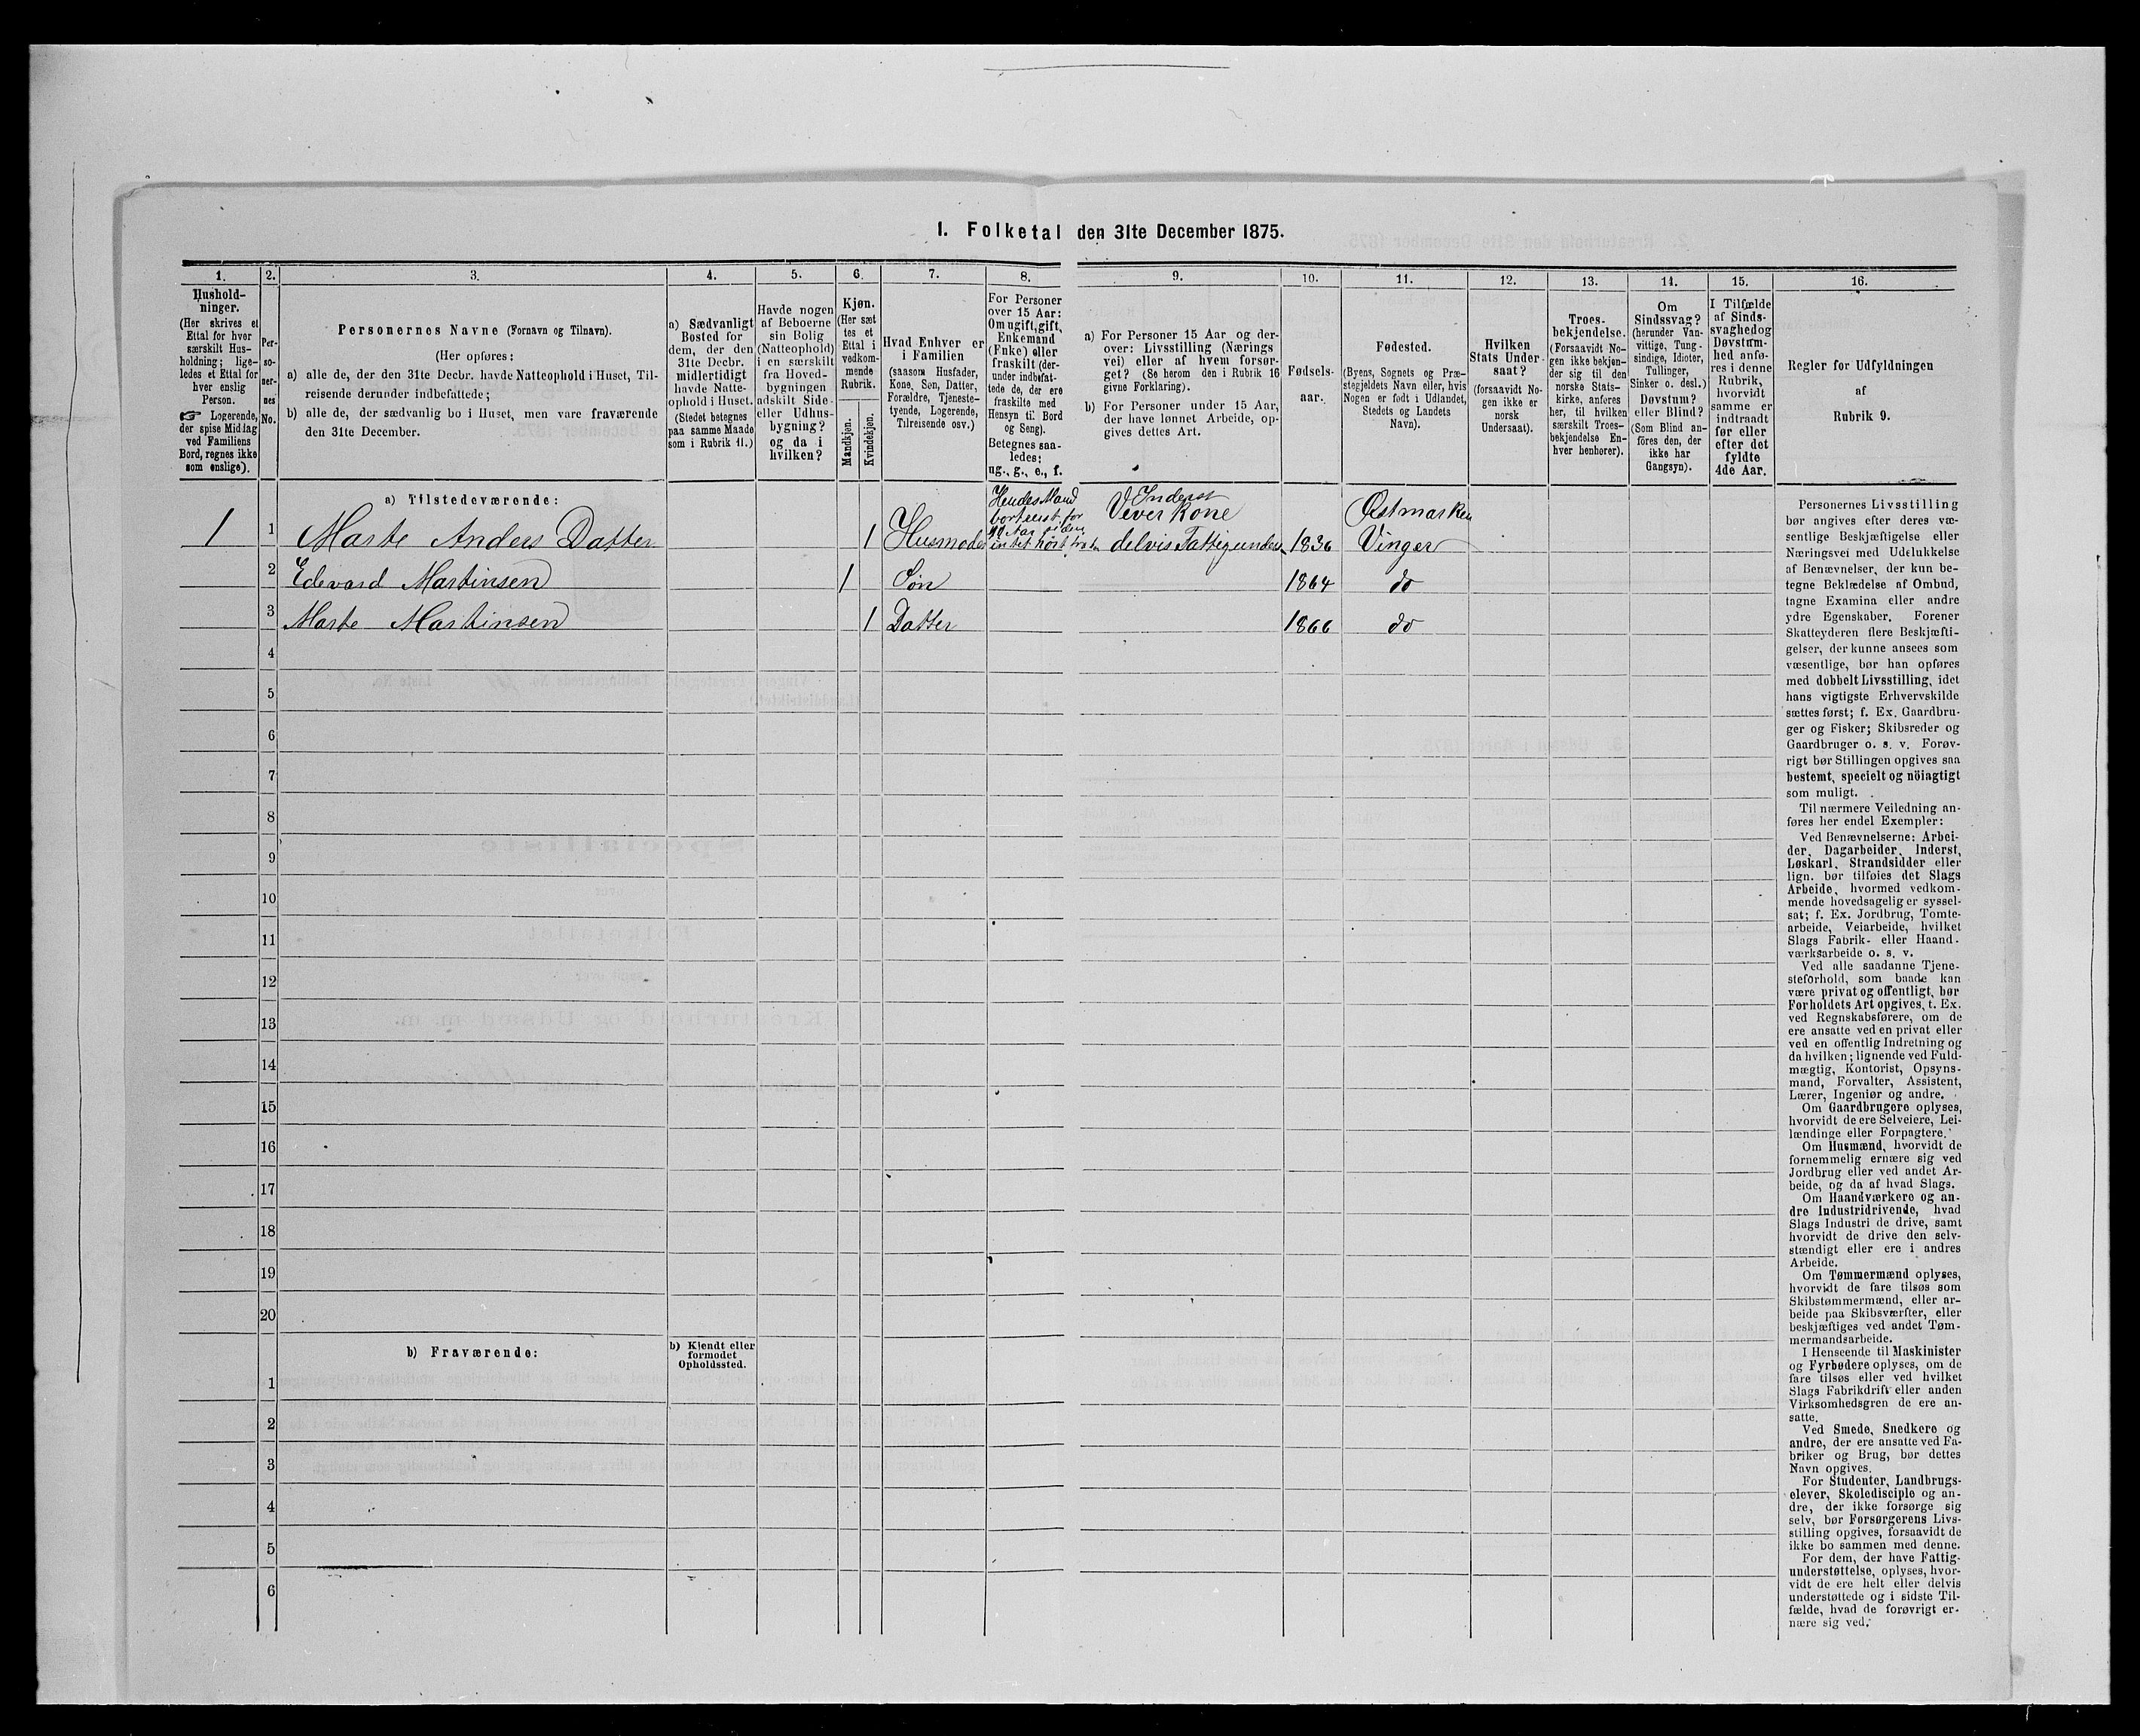 I. Folketal den 31te December 1875.
1.
2.
3.
4.
5.
6.
7.
8.
9.
10.
11.
12.
13.
14.
15.
16.
Hushold-
ninger.
(Her skrives et
Ettal for hver
særskilt Hus-
holdning; lige-
ledes et Ettal for
hver enslig
Person.
☞ Logerende,
der spise Middag
ved Familiens
Bord, regnes ikke
som enslige).
Per-
so-
ner-
nes
No.
Personernes Navne (Fornavn og Tilnavn).
(Her opføres:
a) alle de, der den 31te Decbr. havde Natteophold i Huset, Til-
reisende derunder indbefattede;
b) alle de, der sædvanlig bo i Huset, men vare fraværende
den 31te December.
a) Sædvanligt
Bosted for
dem, der den
31te Decbr.
midlertidigt
havde Natte-
ophold i Huset.
(Stedet betegnes
paa samme Maade
som i Rubrik 11.)
Havde nogen
af Beboerne
sin Bolig
(Natteophold)
i en særskilt
fra Hoved-
bygningen
adskilt Side-
eller Udhus-
bygning?
og da i
hvilken?
Kjøn.
(Her sæt
tes et
Ettal i
vedkom-
mende
Rubrik.
Mandkjøn.
Kvindekjøn.
Hvad Enhver er
i Familien
(saasom Husfader,
Kone, Søn, Datter,
Forældre, Tjeneste-
tyende, Logerende,
Tilreisende osv.)
For Personer
over 15 Aar:
Om ugift, gift,
Enkemand
(Enke) eller
fraskilt (der-
under indbefat-
tede de, der ere
fraskilte med
Hensyn til Bord
og Seng).
Betegnes saa-
ledes:
ug., g., e., f.
a) For Personer 15 Aar og der-
over: Livsstilling (Nærings
vei) eller af hvem forsør-
get? (Se herom den i Rubrik 16
givne Forklaring).
b) For Personer under 15 Aar,
der have lønnet Arbeide, op-
gives dettes Art.
Fødsels-
aar.
Fødested.
(Byens, Sognets og Præ-
stegjeldets Navn eller, hvis
Nogen er født i Udlandet,
Stedets og Landets
Navn).
Hvilken
Stats Under-
saat?
(forsaavidt No-
gen ikke er
norsk
Undersaat).
Troes-
bekjendelse.
(Forsaavidt No-
gen ikke bekjen-
der sig til den
norske Stats-
kirke, anføres
her, til hvilken
særskilt Troes-
bekjendelse En-
hver henhører).
Om
Sindssvag?
(herunder Van-
vittige, Tung-
sindige, Idioter,
Tullinger,
Sinker o. desl.)
Døvstum?
eller Blind?
(Som Blind an-
føres den, der
ikke har
Gangsyn).
I Tilfælde
af Sinds-
svaghed og
Døvstum-
hed anfø-
res i denne
Rubrik,
hvorvidt
samme er
indtraadt
før eller
efter det
fyldte
4de Aar.
Regler for Udfyldningen
af
Rubrik 9.
a) Tilstedeværende:
Hendes Mand
bortreist for
Inderst
Veverkone
Østmarken
1 1 Marte Anders Datter 1 Husmoder intet hørt fra ham delvis Fattigunders. 1836 Vinger
2 Edevard Martinsen 1 Søn 1864 do
3 Marte Martinsen 1 Datter 1866 do
4
5
6
7
8
9
10
11
12
13
14
15
16
17
18
19
20
b) Fraværende:
b) Kjendt eller
formodet
Opholdssted.
1
2
3
4
5
6
Personernes Livsstilling
bør angives efter deres væ-
sentlige Beskjæftigelse eller
Næringsvei med Udelukkelse
af Benævnelser, der kun be-
tegne Beklædelse af Ombud,
tagne Examina eller andre
ydre Egenskaber. Forener
Skatteyderen flere Beskjæfti-
gelser, der kunne ansees som
væsentlige, bør han opføres
med dobbelt Livsstilling, idet
hans vigtigste Erhvervskilde
sættes først; f. Ex. Gaardbru-
ger og Fisker; Skibsreder og
Gaardbruger o. s. v. Forøv-
rigt bør Stillingen opgives saa
bestemt, specielt og nöiagtigt
som muligt.
Til nærmere Veiledning an-
føres her endel Exempler:
Ved Benævnelserne: Arbei-
der, Dagarbeider, Inderst,
Løskarl, Strandsidder eller
lign. bør tilføies det Slags
Arbeide, hvormed vedkom-
mende hovedsagelig er syssel-
sat; f. Ex. Jordbrug, Tomte-
arbeide, Veiarbeide, hvilket
Slags Fabrik- eller Haand-
værksarbeide o. s. v.
Ved alle saadanne Tjene-
steforhold, som baade kan
være privat og offentligt, bør
Forholdets Art opgives, t. Ex.
ved Regnskabsførere, om de
ere ansatte ved en privat eller
ved en offentlig Indretning og
da hvilken; lignende ved Fuld-
mægtig, Kontorist, Opsyns-
mand, Forvalter, Assistent,
Lærer, Ingeniør og andre.
Om Gaardbrugere oplyses,
hvorvidt de ere Selveiere, Lei-
lændinge eller Forpagtere.
Om Husmænd, hvorvidt de
fornemmelig ernære sig ved
Jordbrug eller ved andet Ar-
beide, og da af hvad Slags.
Om Haandværkere og an-
dre Industridrivende, hvad
Slags Industri de drive, samt
hvorvidt de drive den selv-
stændigt eller ere i andres
Arbeide.
Om Tømmermænd oplyses,
hvorvidt de fare tilsøs som
Skibstømmermænd, eller ar-
beide paa Skibsværfter, eller
beskjæftiges ved andet Tøm-
mermandsarbeide.
I Henseende til Maskinister
og Fyrbødere oplyses, om de
fare tilsøs eller ved hvilket
Slags Fabrikdrift eller anden
Virksomhedsgren de ere an-
satte.
Ved Smede, Snedkere og
andre, der ere ansatte ved Fa-
briker og Brug, bør dettes
Navn opgives.
For Studenter, Landbrugs-
elever, Skoledisciple og an-
dre, der ikke forsørge sig
selv, bør Forsørgerens Livs-
stilling opgives, forsaavidt de
ikke bo sammen med denne.
For dem, der have Fattig-
understøttelse, oplyses, hvor-
vidt de ere helt eller delvis
understøttede og i sidste Til-
fælde, hvad de forøvrigt er-
nære sig ved.